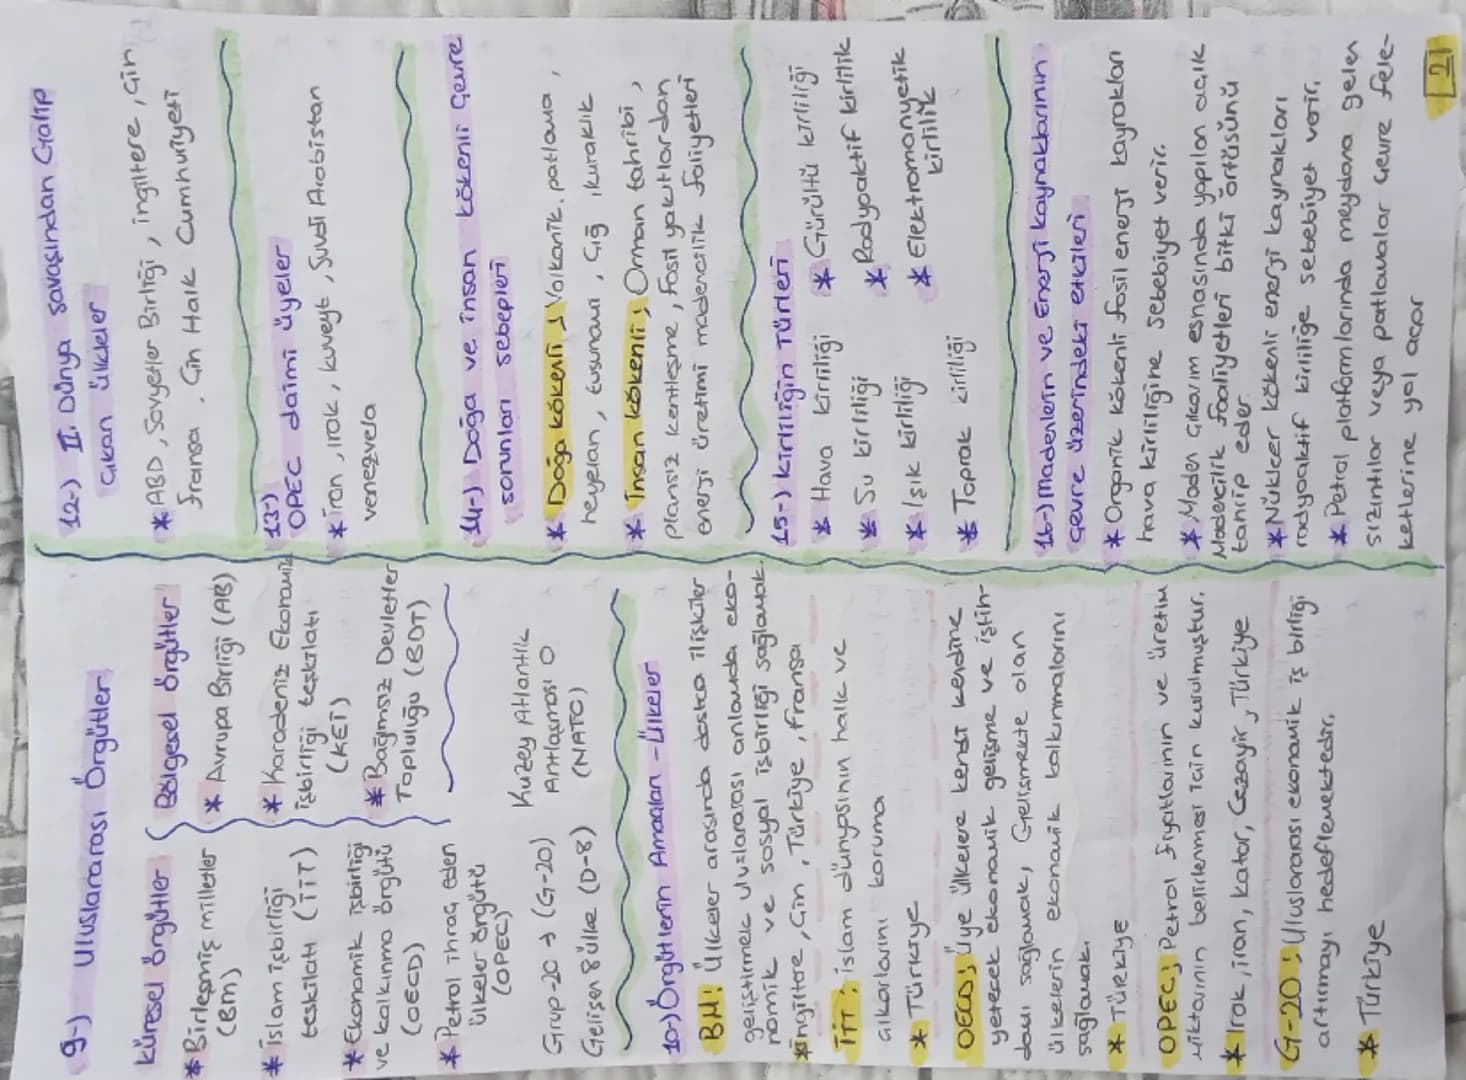 9-) Uluslararası Örgütler
Küresel Örgütler
* Birleşmiş milletler
(BM)
* İslam işbirliği
teşkilatı (İİT)
* Ekonomik işbirliği
ve kalkınma örgütü
(OECD)
* Petrol ihraç eden
ülkeler örgütü
(OPEC)
Bölgesel Örgütler
* Avrupa Birliği (AB)
* Karadeniz Ekonomik
işbirliği teşkilatı
(KEİ)
* Bağımsız Devletler
Topluluğu (BDT)
Grup-20 → (G-20)
Gelişen 8 ülke (D-8)
Kuzey Atlantik
Antlaşması O
(NATO)
10-) Örgütlerin Amaçları - Ülkeler
BM: Ülkeler arasında dostça ilişkiler
geliştirmek uluslararası anlamda eko-
nomik ve sosyal işbirliği sağlamak.
* İngiltere, Çin, Türkiye, Fransa
İİT: İslam dünyasının halk ve
çıkarlarını koruma
* Türkiye
OECD; Üye ülkelere kendi kendine
yetecek ekonomik gelişme ve istih-
damı sağlamak, Gelişmekte olan
ülkelerin ekonomik kalkınmalarını
sağlamak.
* Türkiye
OPEC; Petrol fiyatlarının ve üretim
miktarının belirlenmesi için kurulmuştur.
* Irak, İran, Katar, Cezayir, Türkiye
G-20; Uluslararası ekonomik iş birliği
artırmayı hedeflemektedir.
* Türkiye
12-) II. Dünya savaşından Galip
çıkan ülkeler
* ABD, Sovyetler Birliği, ingiltere, Çin
fransa, Çin Halk Cumhuriyeti
13-)
OPEC daimi üyeler
* İran, ırak, kuveyt, Suudi Arabistan
venezvela
14-) Doğa ve insan kökenli Çevre
sorunları sebepleri
* Doğa kökenli; Volkanik patlama,
heyelan, tusunami, Çığ, kuraklık
* İnsan kökenli; Orman tahribi,
plansız kentleşme, fosil yakıtlardan
enerji üretimi madencilik faliyetleri
15-) Kirliliğin Türleri
* Hava kirliliği
* Su kirliliği
* Işık kirliliği
* Toprak kirliliği
* Gürültü kirliliği
* Radyoaktif kirlilik
* Elektromanyetik
kirlilik
16-) Madenlerin ve Enerji kaynaklarının
Çevre üzerindeki etkileri
* Organik kökenli fosil enerji kaynakları
hava kirliliğine sebebiyet verir.
* Maden çıkarım esnasında yapılan açık
Madencilik faaliyetleri bitki örtüsünü
tahrip eder.
* Nükleer kökenli enerji kaynakları
radyoaktif kirliliğe sebebiyet verir.
* Petrol platformlarında meydana gelen
sızıntılar veya patlamalar Çevre fela-
ketlerine yol açar
21